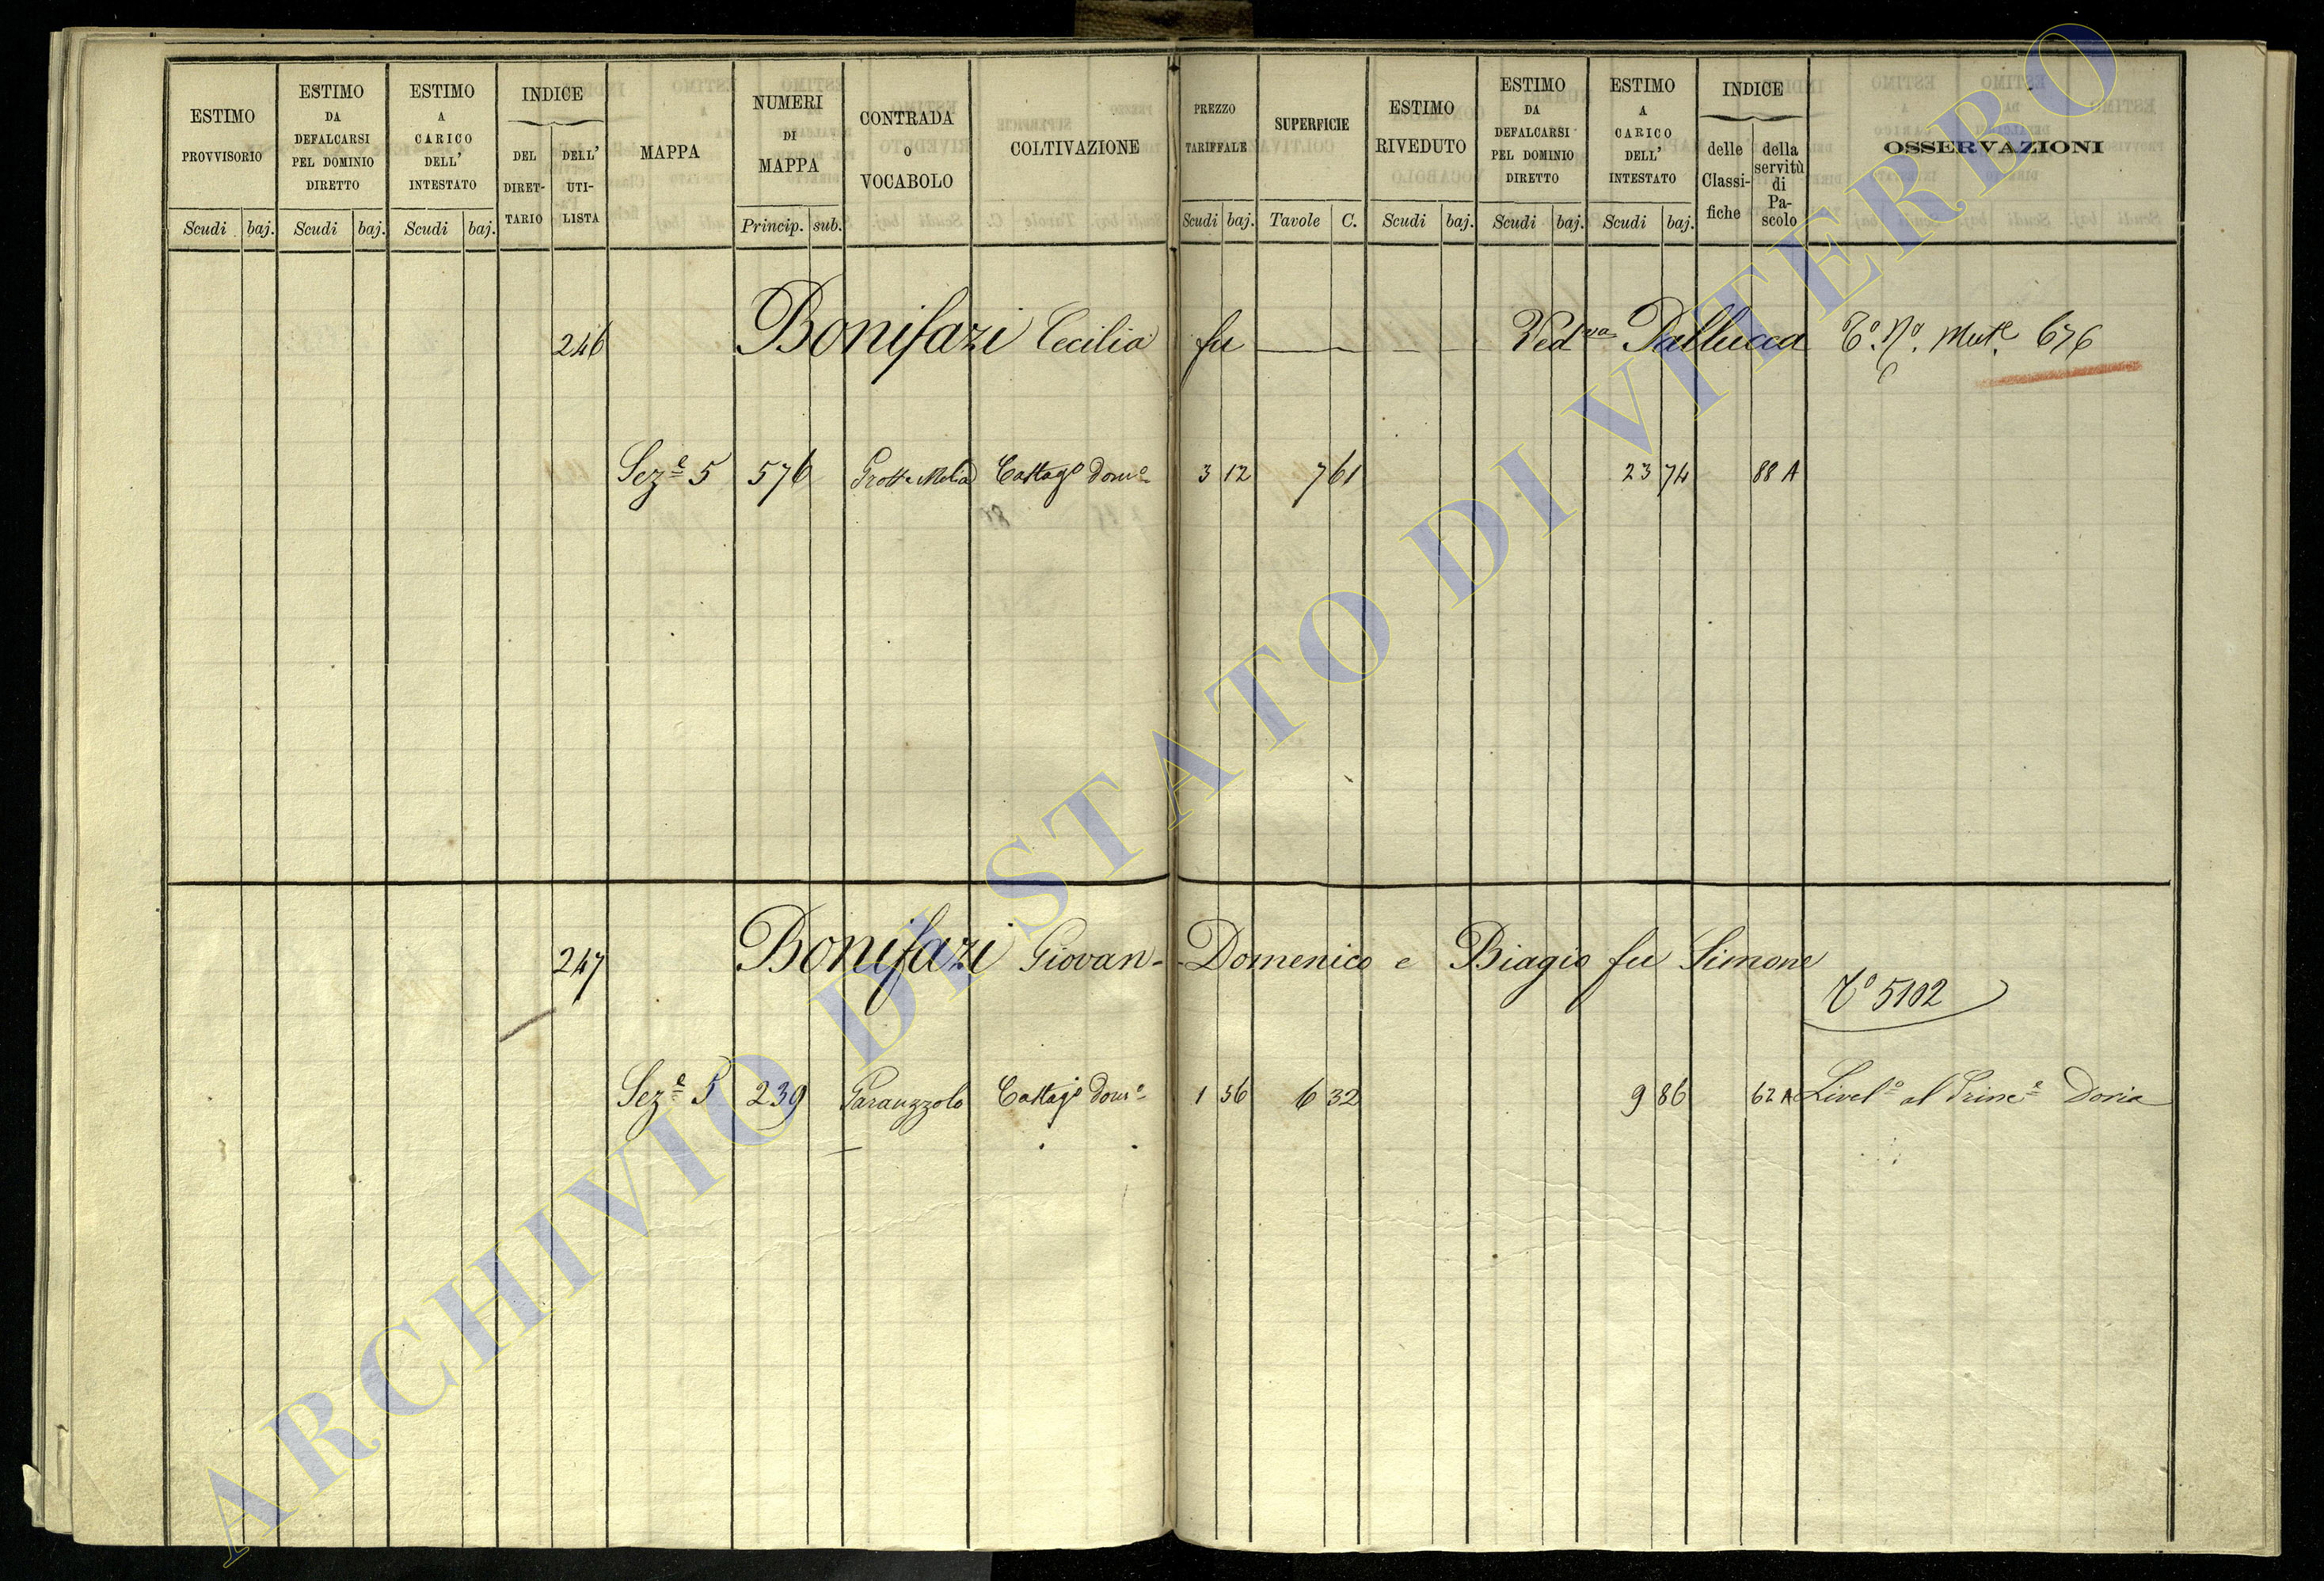 ESTIMO PROVVISORIO
Scudi baj.
ESTIMO DA DEFALCARSI PEL DOMINIO DIRETTO
Scudi baj.
ESTIMO A CARICO DELL' INTESTATO
Scudi baj.
INDICE
DEL DIRET-TARIO
DELL' UTI-LISTA
MAPPA
NUMERI DI MAPPA
Princip. sub.
CONTRADA O VOCABOLO
COLTIVAZIONE
PREZZO TARIFFALE
Scudi baj.
SUPERFICIE
Tavole C.
ESTIMO RIVEDUTO
Scudi baj.
ESTIMO DA DEFALCARSI PEL DOMINIO DIRETTO
Scudi baj.
ESTIMO A CARICO DELL' INTESTATO
Scudi baj.
INDICE
delle Classi-fiche
della servitù di Pa-scolo
OSSERVAZIONI
246 Bonifazi Cecilia fu Ved.va Pallucca 676
Sez.e 5 576 Castag.o Dom.o 3 12 7 61 23 74 88 A
247 Bonifazi Giovan-Domenico e Biagio fu Simone
5102
Sez.e 5 239 Paranzzolo Castag.o Dom.o 1 56 6 32 9 86 62 A Livel.o al Princ.e Doria
ARCHIVIO DI STATO DI VITERBO